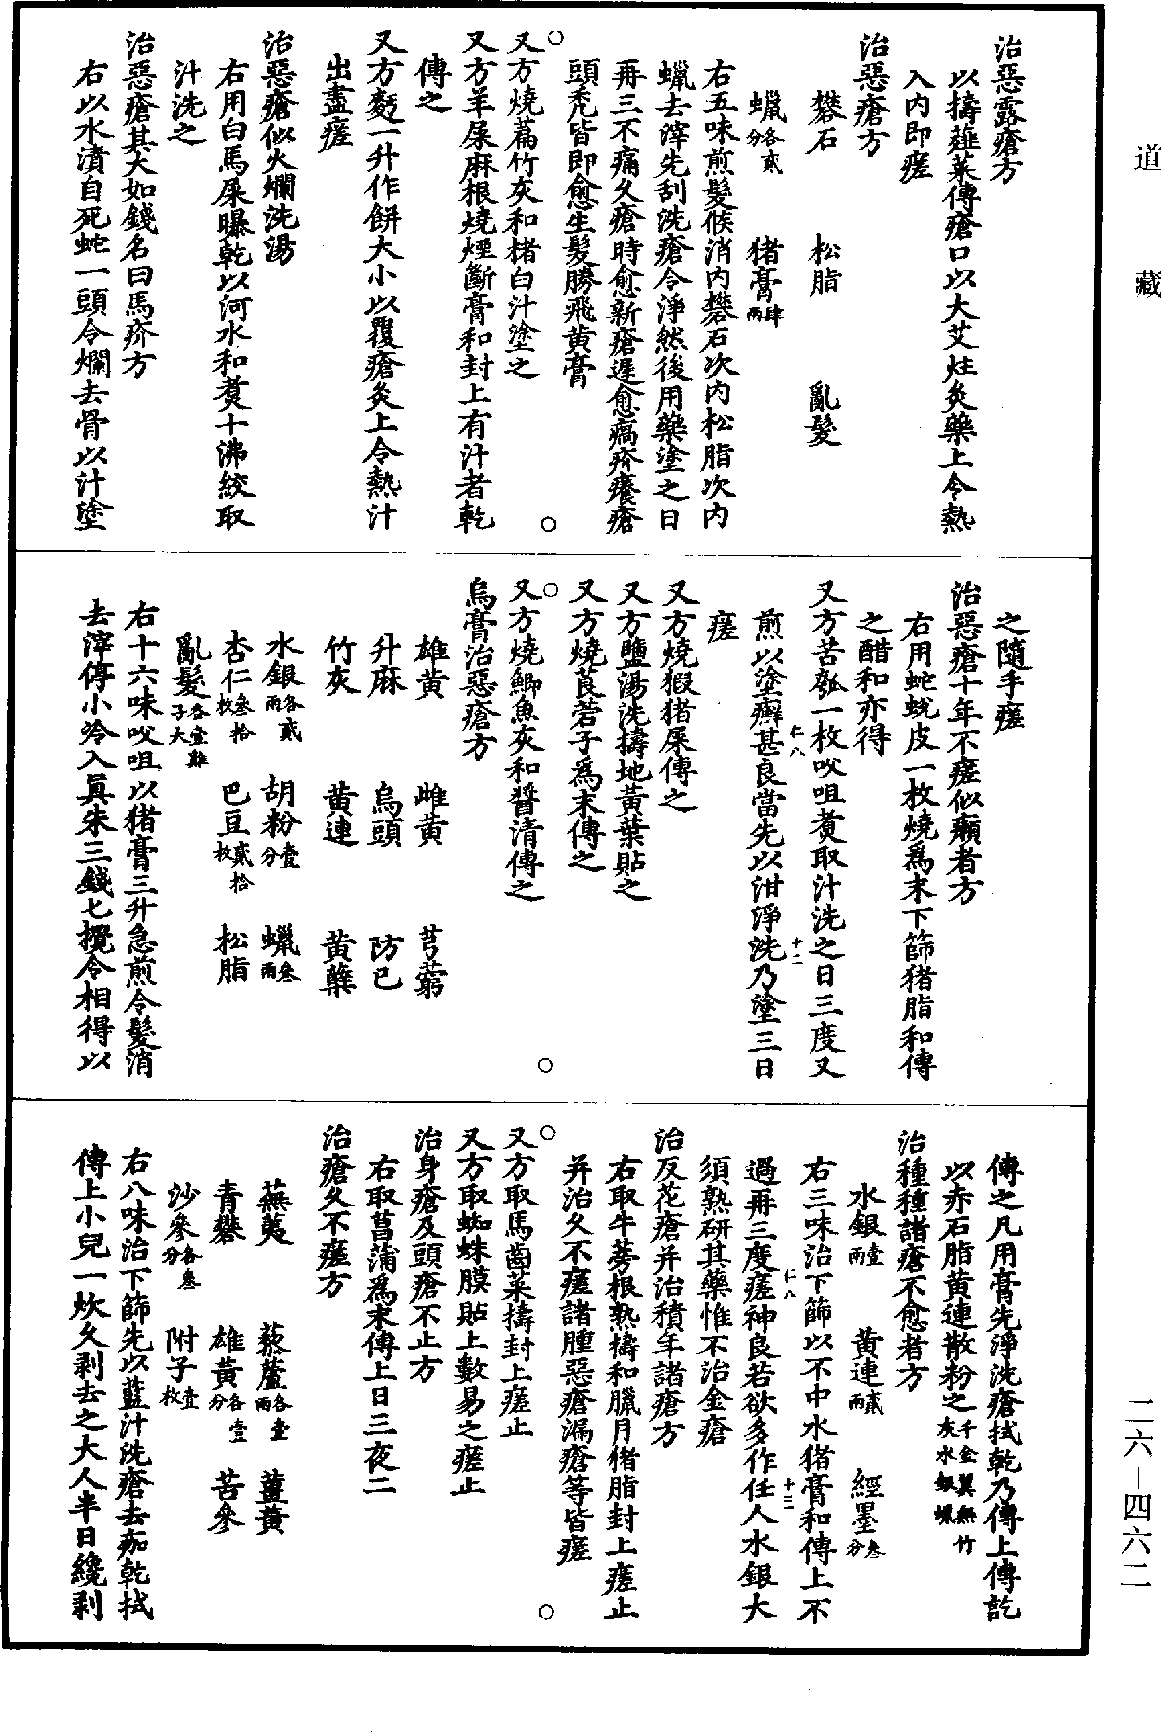 道藏
治惡露瘡方
以擣薤菜傅瘡口以大艾炷灸藥上令熱
入內即瘥
治惡瘡方
礬石　松脂　亂髮
蠟各貳分　猪膏肆兩
右五味煎髮候消內礬石次內松脂次內
蠟去滓先刮洗瘡令淨然後用藥塗之日
再三不痛久瘡時愈新瘡遲愈瘑疥癢瘡
頭秃皆即愈生髮勝飛黃膏
又方燒萹竹灰和楮白汁塗之
又方羊屎麻根燒煙斷膏和封上有汁者乾
傅之
又方麪一升作餅大小以覆瘡灸上令熱汁
出盡瘥
治惡瘡似火爛洗湯
右用白馬屎曝乾以河水和煑十沸絞取
汁洗之
治惡瘡其大如錢名曰馬疥方
右以水漬自死蛇一頭令爛去骨以汁塗
之隨手瘥
治惡瘡十年不瘥似癩者方
右用蛇蛻皮一枚燒爲末下篩猪脂和傅
之醋和亦得
又方苦瓠一枚㕮咀煑取汁洗之日三度又
煎以塗癬甚良當先以泔淨洗乃塗三日
瘥
仁八　十二
又方燒猳猪屎傅之
又方鹽湯洗擣地黃葉貼之
又方燒莨菪子爲末傅之
又方燒鯽魚灰和醬清傅之
烏膏治惡瘡方
雄黃　雌黃　芎藭
升麻　烏頭　防已
竹灰　黃連　黃蘗
水銀各貳兩　胡粉壹分　蠟叁兩
杏仁叁拾枚　巴豆貳拾枚　松脂
亂髮各壹雞子大
右十六味㕮咀以猪膏三升急煎令髮消
去滓停小冷入眞朱三錢匕攪令相得以
傅之凡用膏先淨洗瘡拭乾乃傅上傅訖
以赤石脂黃連散粉之千金翼無竹灰水銀蠟
治種種諸瘡不愈者方
水銀壹兩　黃連貳兩　經墨叁分
右三味治下篩以不中水猪膏和傅上不
過再三度瘥神良若欲多作任人水銀大
須熟研其藥惟不治金瘡
仁八　十三
治反花瘡并治積年諸瘡方
右取牛蒡根熟擣和臘月猪脂封上瘥止
并治久不瘥諸腫惡瘡漏瘡等皆瘥
又方取馬齒菜擣封上瘥止
又方取蜘蛛膜貼上數易之瘥止
治身瘡及頭瘡不止方
右取菖蒲爲末傅上日三夜二
治瘡久不瘥方
蕪荑　藜蘆各壹兩　薑黃
青礬　雄黃各壹分　苦參
沙參各叁分　附子壹枚
右八味治下篩先以藍汁洗瘡去痂乾拭
傅上小兒一炊久剥去之大人半日纔剥
二六－四六二